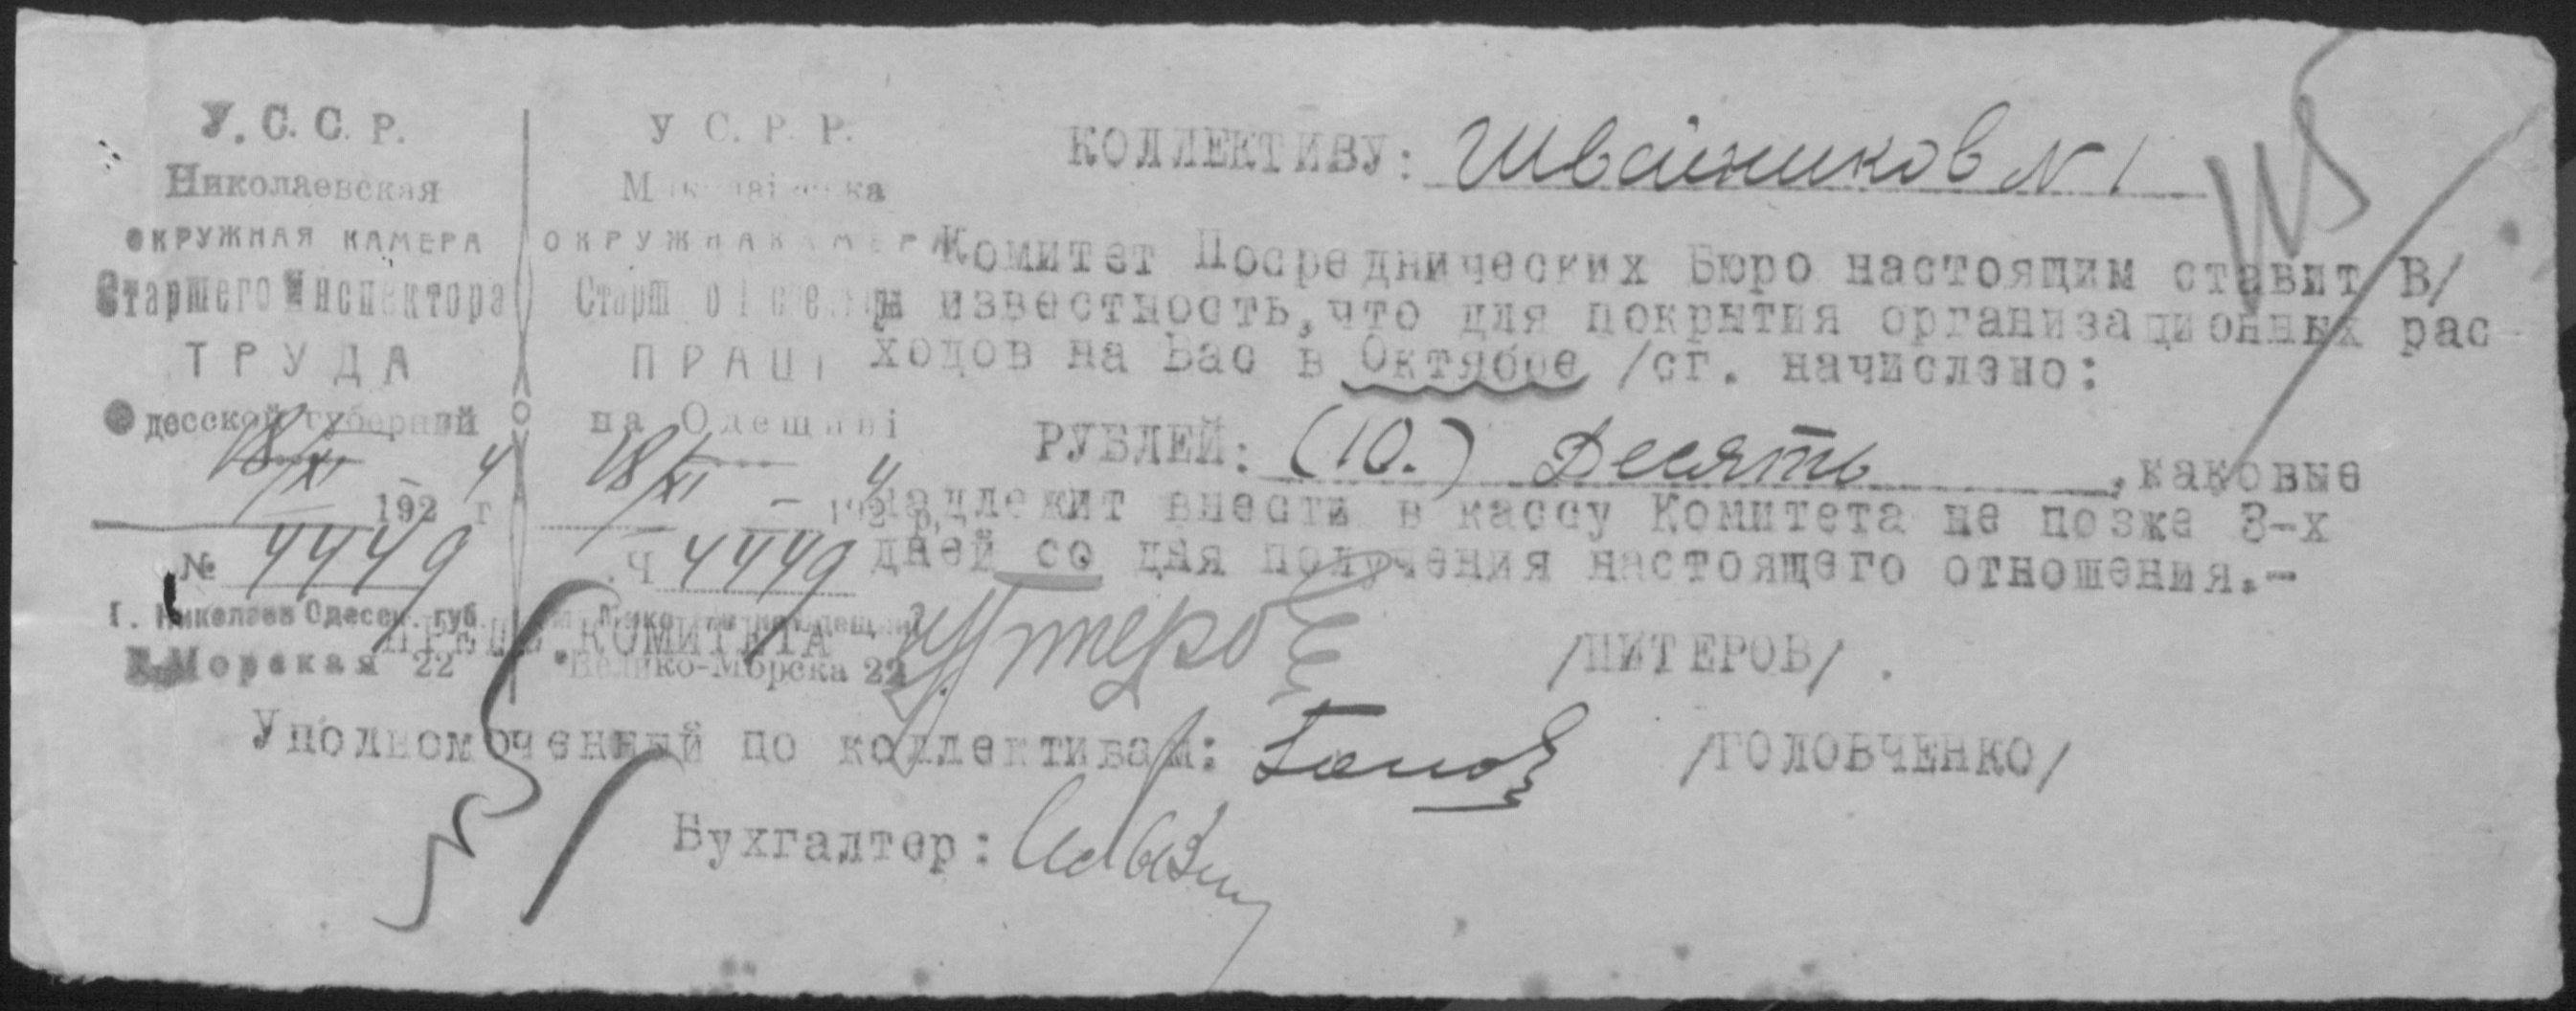 У. С. С. Р.
Николаевская
ОКРУЖНАЯ КАМЕРА
Старшего Инспектора
ТРУДА
Одесской губерний
18/XI – 1924 г
№ 4449
г. Николаев Одесск. губ
Б. Морская 22
У С. Р. Р.
ОКРУЖНА КАМЕРА
ПРАЦІ
на Одещині
18/XI – 1924 р.
Ч 4449
Велико-Морска 22
КОЛЛЕКТИВУ: Швейников N 1
Комитет Посреднических Бюро настоящим ставит В/
известность, что для покрытия организационных рас
ходов на Вас в Октябре /сг. начислено:
РУБЛЕЙ: (10.) Десять, каковые
надлежит внести в кассу Комитета не позже 3-х
дней со дня получения настоящего отношения.-
ПРЕДС. КОМИТЕТА Питеров /ПИТЕРОВ/.
Уполномоченный по коллективам: /ГОЛОВЧЕНКО/
Бухгалтер: